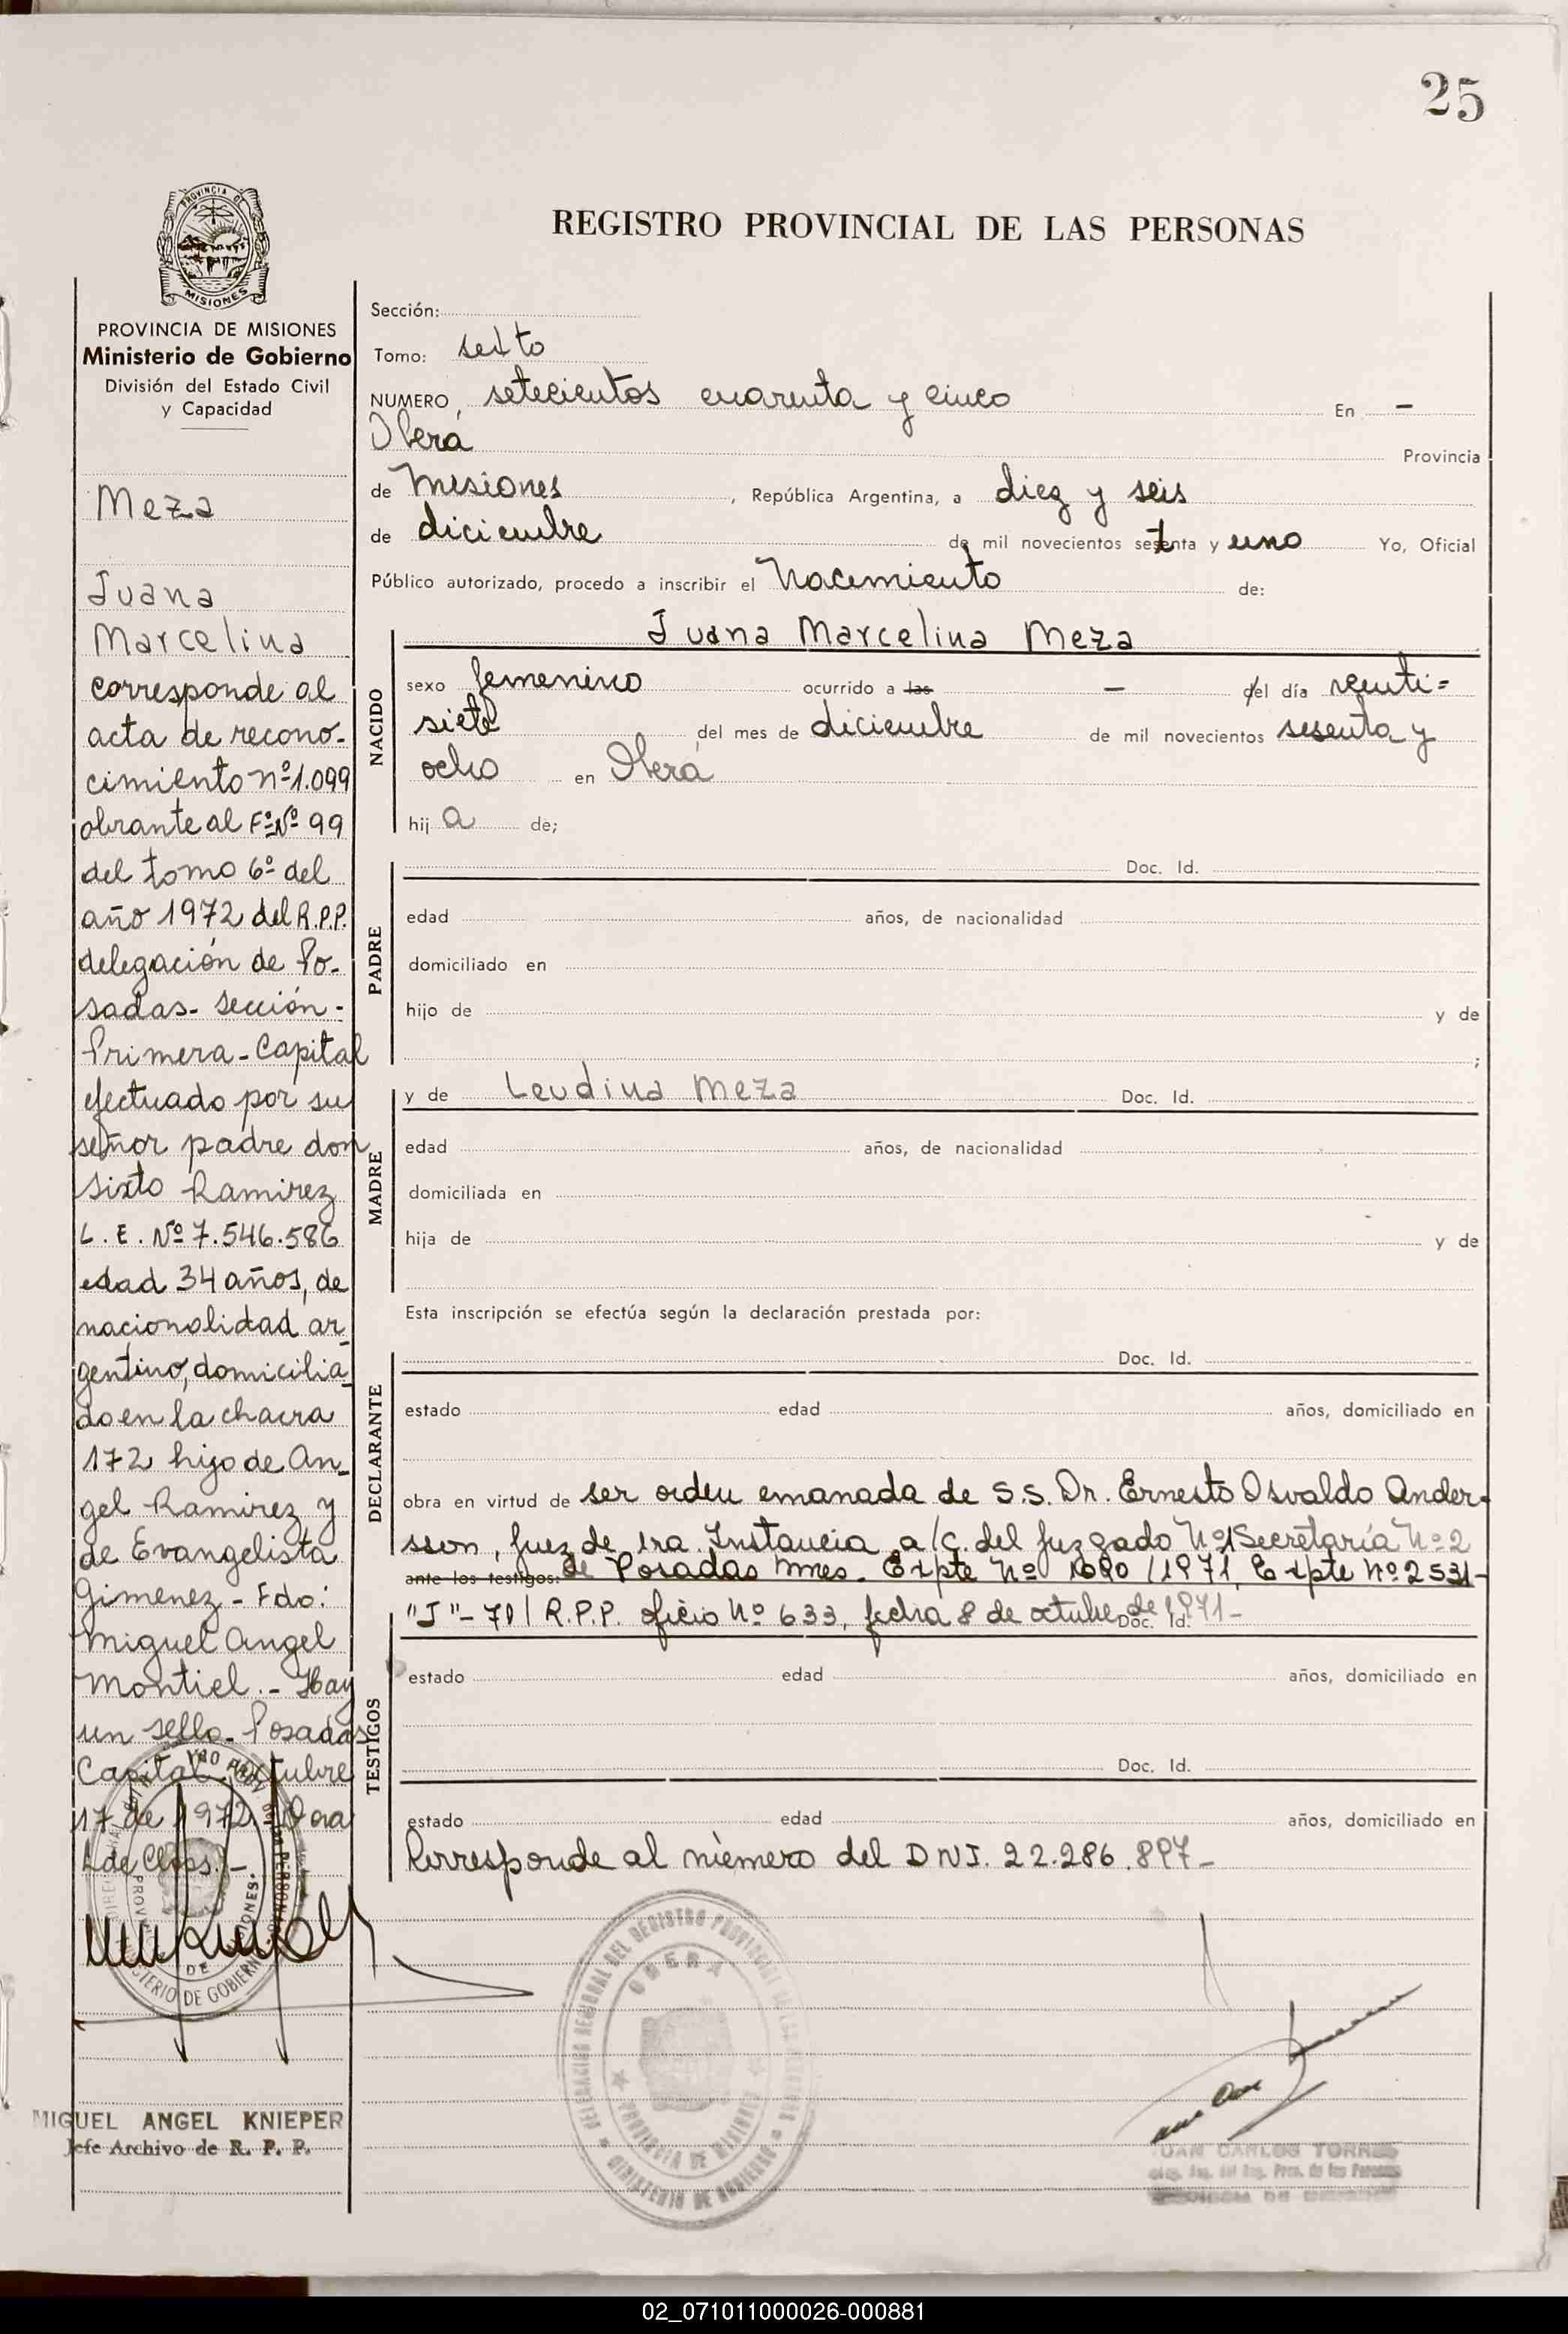 25
PROVINCIA DE
MISIONES
REGISTRO PROVINCIAL DE LAS PERSONAS
PROVINCIA DE MISIONES
Ministerio de Gobierno
División del Estado Civil
y Capacidad
Meza
Juana
Marcelina
corresponde al
acta de recono-
cimiento nº 1.099
obrante al Fº Nº 99
del tomo 6º del
año 1972 del R.P.P.
delegación de Po-
sadas- sección-
Primera-Capital
efectuado por su
señor padre don
Sixto Ramirez
L.E. Nº 7.546.586
edad 34 años, de
nacionalidad ar-
gentino, domicilia-
do en la chacra
172 hijo de An-
gel Ramirez y
de Evangelista
Gimenez - Fdo:
Miguel Angel
Montiel.- Hay
un sello- Posadas
Capital octubre
17 de 1972
MIGUEL ANGEL KNIEPER
Jefe Archivo de R. P. P.
Sección:
Tomo: sexto
NUMERO, setecientos cuarenta y cinco En -
Oberá Provincia
de Misiones, República Argentina, a diez y seis
de diciembre de mil novecientos setenta y uno Yo, Oficial
Público autorizado, procedo a inscribir el Nacimiento de:
NACIDO
Juana Marcelina Meza
sexo femenino ocurrido a las - del día veinti=
siete del mes de diciembre de mil novecientos sesenta y
ocho en Oberá
hij a de;
PADRE
Doc. Id.
edad años, de nacionalidad
domiciliado en
hijo de y de
;
MADRE
y de Leudina Meza Doc. Id.
edad años, de nacionalidad
domiciliada en
hija de y de
Esta inscripción se efectúa según la declaración prestada por:
DECLARANTE
Doc. Id.
estado edad años, domiciliado en
obra en virtud de ser orden emanada de S.S. Dr. Ernesto Osvaldo Ander-
sson, Juez de 1ra. Instancia a/c. del Juzgado Nº 1 Secretaría Nº 2
ante los testigos: de Posadas Mnes. Expte Nº 1690/1971, Expte Nº 2531-
"J"-71/R.P.P. oficio Nº 633, fecha 8 de octubre de 1971- Doc. Id.
TESTIGOS
estado edad años, domiciliado en
Doc. Id.
estado edad años, domiciliado en
Corresponde al número del DNI. 22.286.897-
DELEGACION REGIONAL DEL REGISTRO PROVINCIAL DE LAS PERSONAS
OBERA
PROVINCIA DE MISIONES
MINISTERIO DE GOBIERNO
JUAN CARLOS TORRES
02_071011000026-000881